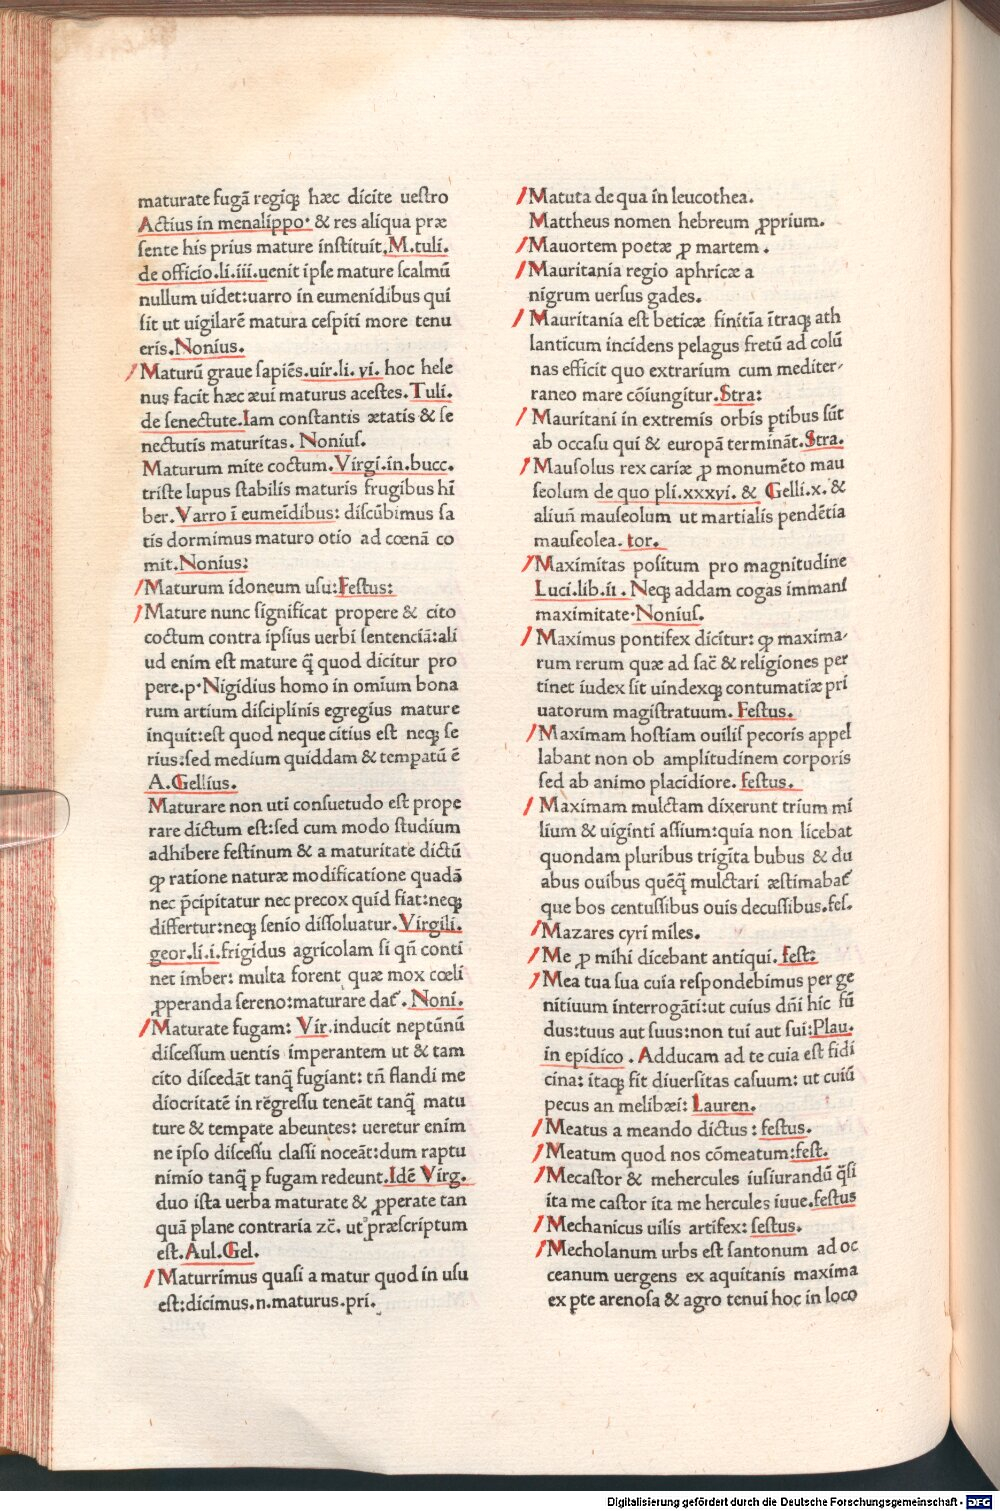 maturate fugā regiqꝫ hæc dicite uestro
Actius in menalippo· & res aliqua præ
sente his prius mature instituit. M. tuli.
de officio. li. iii. uenit ipse mature scalmū
nullum uidet: uarro in eumenidibus qui
sit ut uigilarē matura cespiti more tenu
eris. Nonius.
Maturū graue sapiēs. uir. li. vi. hoc hele
nus facit hæc æui maturus acestes. Tuli.
de senectute. Iam constantis ætatis & se
nectutis maturitas. Nonius.
Maturum mite coctum. Virgi. in. bucc.
triste lupus stabilis maturis frugibus hī
ber. Varro ī eumeīdibus: discūbimus sa
tis dormimus maturo otio ad cœnā co
mit. Nonius:
Maturum idoneum usu: Festus:
Mature nunc significat propere & cito
coctum contra ipsius uerbi sentenciā: ali
ud enim est mature q̄ quod dicitur pro
pere. p· Nigidius homo in omīum bona
rum artium disciplinis egregius mature
inquit: est quod neque citius est neqꝫ se
rius: sed medium quiddam & tempatū ē
A. Gellius.
Maturare non uti consuetudo est prope
rare dictum est: sed cum modo studium
adhibere festinum & a maturitate dictū
ꝙ ratione naturæ modificatione quadā
nec p̄cipitatur nec precox quid fiat: neqꝫ
differtur: neqꝫ senio dissoluatur. Virgili.
geor. li. i. frigidus agricolam si qn̄ conti
net imber: multa forent quæ mox cœli
ꝓperanda sereno: maturare dat̄. Noni.
Maturate fugam: Vir. inducit neptūnū
discessum uentis imperantem ut & tam
cito discedāt tanq̄ fugiant: tn̄ flandi me
diocritatē in rēgressu teneāt tanq̄ matu
ture & tempate abeuntes: ueretur enim
ne ipso discessu classi noceāt: dum raptu
nimio tanq̄ ꝑ fugam redeunt. Idē Virg.
duo ista uerba maturate & ꝓperate tan
quā plane contraria zc̄. ut præscriptum
est. Aul. Gel.
Maturrimus quasi a matur quod in usu
est: dicimus. n. maturus. pri.
Matuta de qua in leucothea.
Mattheus nomen hebreum ꝓprium.
Mauortem poetæ ꝓ martem.
Mauritania regio aphricæ a
nigrum uersus gades.
Mauritania est beticæ finitīa ītraqꝫ ath
lanticum incidens pelagus fretū ad colū
nas efficit quo extrarium cum mediter⸗
raneo mare cōiungitur. Stra:
Mauritani in extremis orbis ꝑtibus sūt
ab occasu qui & europā termināt. Stra.
Mausolus rex cariæ ꝓ monumēto mau
seolum de quo pli. xxxvi. & Gelli. x. &
aliun̄ mauseolum ut martialis pendētia
mauseolea. tor.
Maximitas positum pro magnitudine
Luci. lib. ii. Neqꝫ addam cogas immani
maximitate· Nonius.
Maximus pontifex dicitur: ꝙ maxima⸗
rum rerum quæ ad sac̄ & religiones per
tinet iudex sit uindexqꝫ contumatiæ pri
uatorum magistratuum. Festus.
Maximam hostiam ouilis pecoris appel
labant non ob amplitudinem corporis
sed ab animo placidiore. festus.
Maximam mulctam dixerunt trium mi
lium & uiginti assium: quia non licebat
quondam pluribus trigīta bubus & du
abus ouibus quēq̄ mulctari æstimabat̄
que bos centussibus ouis decussibus. fes.
Mazares cyri miles.
Me ꝓ mihi dicebant antiqui. fest:
Mea tua sua cuia respondebimus per ge
nitiuum interrogāti: ut cuius dn̄i hic fū
dus: tuus aut suus: non tui aut sui: Plau.
in epidico. Adducam ad te cuia est fidi
cina: itaqꝫ fit diuersitas casuum: ut cuiū
pecus an melibæi: Lauren.
Meatus a meando dictus: festus.
Meatum quod nos cōmeatum: fest.
Mecastor & mehercules iusiurandū q̄si
ita me castor ita me hercules iuue. festus
Mechanicus uilis artifex: festus.
Mecholanum urbs est santonum ad oc
ceanum uergens ex aquitanis maxima
ex ꝑte arenosa & agro tenui hoc in loco
Digitalisierung gefördert durch die Deutsche Forschungsgemeinschaft - DFG